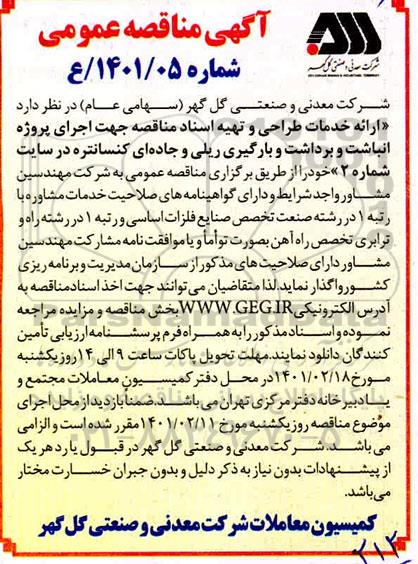 آگهی مناقصه عمومی
شماره ۱۴۰۱/۰۵/ع
شرکت معدنی و صنعتی گل گهر
شرکت معدنی و صنعتی گل گهر (سهامی عام) در نظر دارد
«ارائه خدمات طراحی و تهیه اسناد مناقصه جهت اجرای پروژه
انباشت و برداشت و بارگیری ریلی و جاده‌ای کنسانتره در سایت
شماره ۲» خود را از طریق برگزاری مناقصه عمومی به شرکت مهندسین
مشاور واجد شرایط و دارای گواهینامه های صلاحیت خدمات مشاوره با
رتبه ۱ در رشته صنعت تخصص صنایع فلزات اساسی و رتبه ۱ در رشته راه و
ترابری تخصص راه آهن بصورت تواماً و یا موافقت نامه مشارکت مهندسین
مشاور دارای صلاحیت های مذکور از سازمان مدیریت و برنامه ریزی
کشور واگذار نماید. لذا متقاضیان می توانند جهت اخذ اسناد مناقصه به
آدرس الکترونیکی WWW.GEG.IR بخش مناقصه و مزایده مراجعه
نموده و اسناد مذکور را به همراه فرم پرسشنامه ارزیابی تأمین
کنندگان دانلود نمایند. مهلت تحویل پاکات ساعت ۹ الی ۱۴ روز یکشنبه
مورخ ۱۴۰۱/۰۲/۱۸ در محل دفتر کمیسیون معاملات مجتمع و
یا دبیرخانه دفتر مرکزی تهران می باشد. ضمناً بازدید از محل اجرای
موضوع مناقصه روز یکشنبه مورخ ۱۴۰۱/۰۲/۱۱ مقرر شده است و الزامی
می باشد. شرکت معدنی و صنعتی گل گهر در قبول یا رد هر یک
از پیشنهادات بدون نیاز به ذکر دلیل و بدون جبران خسارت مختار
می باشد.
کمیسیون معاملات شرکت معدنی و صنعتی گل گهر
۲۱۲